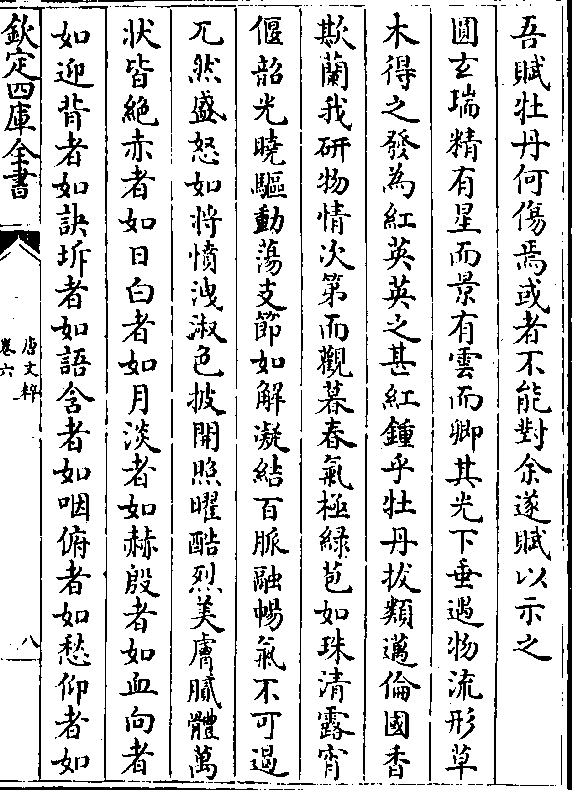 吾賦牡丹何傷焉或者不能對余遂賦以示之
圓玄瑞精有星而景有雲而卿其光下垂遇物流形草
木得之發為紅英英之甚紅鍾乎牡丹拔類邁倫國香
欺蘭我研物情次第而觀暮春氣極緑苞如珠清露宵
偃韶光曉驅動蕩支節如解凝結百脈融暢氣不可遏
兀然盛怒如將憤洩淑色披開照曜酷烈美膚膩體萬
狀皆絶赤者如日白者如月淡者如赫殷者如血向者
如迎背者如訣坼者如語含者如咽俯者如愁仰者如
欽定四庫全書
唐文粹
卷六
八